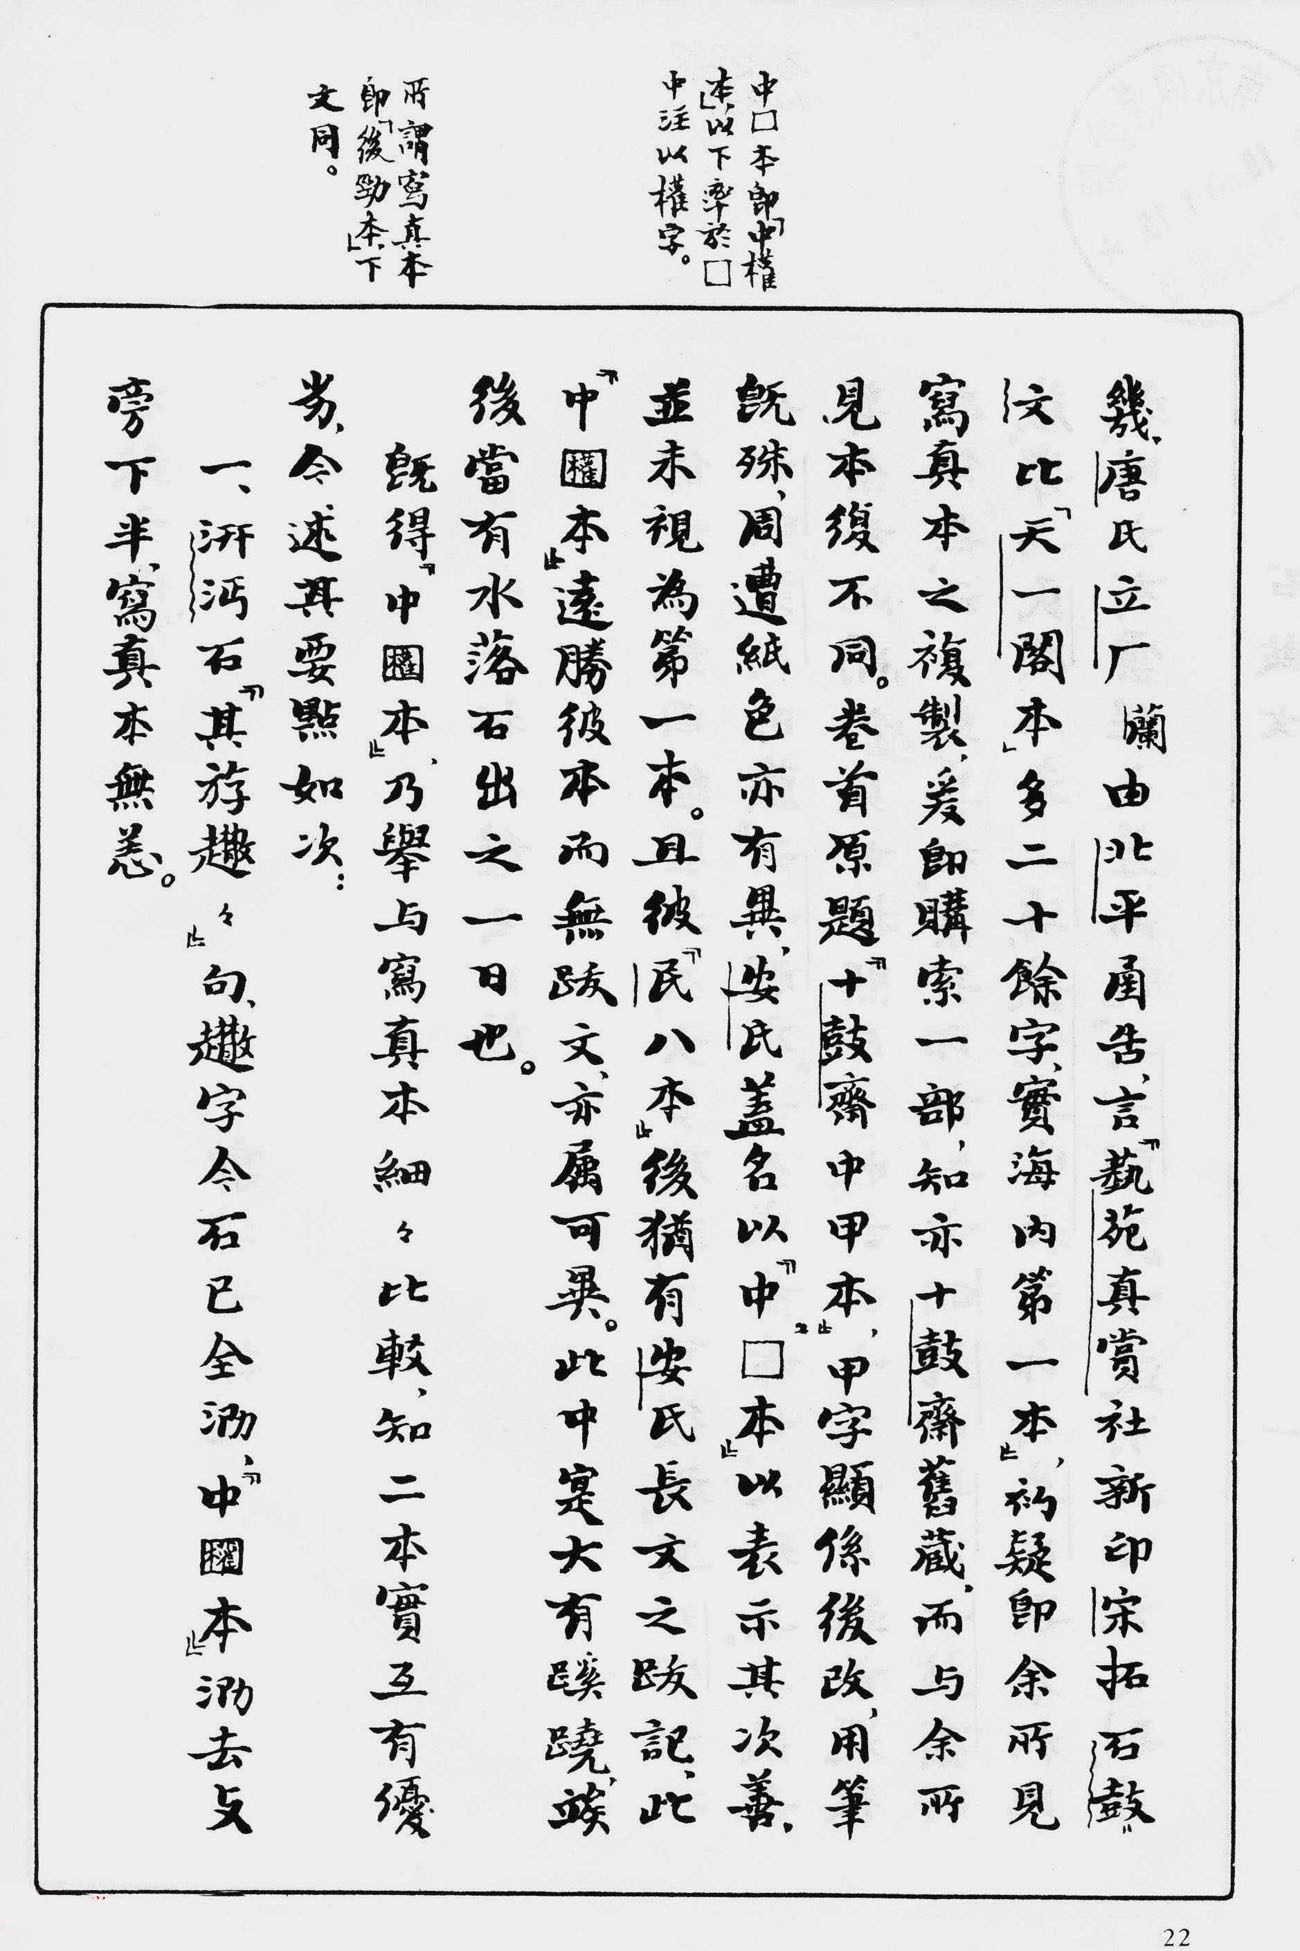 中□本即「中權
本」，以下率於□
中注以權字。
所謂寫真本
即「後勁本」，下
文同。
幾，唐氏立厂蘭由北平函告，言「藝苑真賞社新印宋拓石鼓
文比「天一閣本」多二十餘字，實海內第一本」，初疑即余所見
寫真本之複製，爰即購索一部，知亦十鼓齋舊藏，而与余所
見本復不同。卷首原題「十鼓齋中甲本」，甲字顯係後改，用筆
既殊，周遭紙色亦有異，安氏蓋名以「中□本」以表示其次善，
並未視為第一本。且彼「民八本」後猶有安氏長文之跋記，此
「中權本」遠勝彼本而無跋文，亦屬可異。此中寔大有蹊蹺，竢
後當有水落石出之一日也。
既得「中權本」，乃舉与寫真本細々比較，知二本實互有優
劣，今述其要點如次：
一、汧沔石「其游趣々」句，趣字今石已全泐，「中權本」泐去攴
旁下半，寫真本無恙。
22